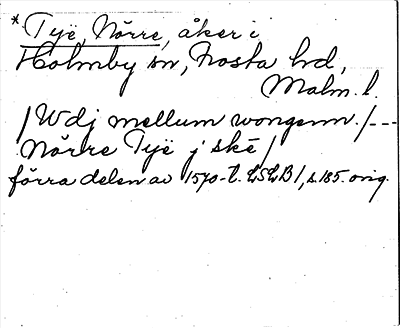 * Tyë, Nörre, åker i
Holmby sn, Frosta hd,
Malm. l.
/Wdj mellum wongenn./---
Nörre Tyë j skë/
förra delen av 1570-t. LSLB 1, s. 185. orig.